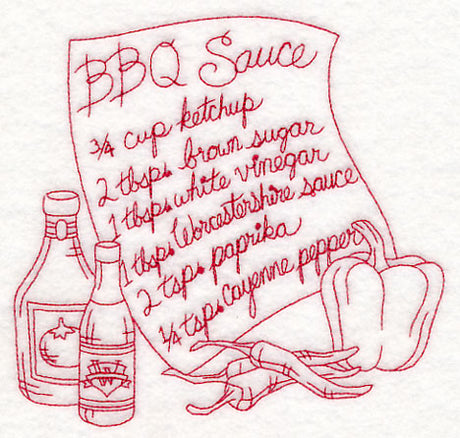 BBQ Sauce
3/4 cup ketchup
2 tbsps. brown sugar
1 tbsps. white vinegar
1 tbsps. Worcestershire sauce
2 tsps. paprika
1/4 tsps. cayenne pepper